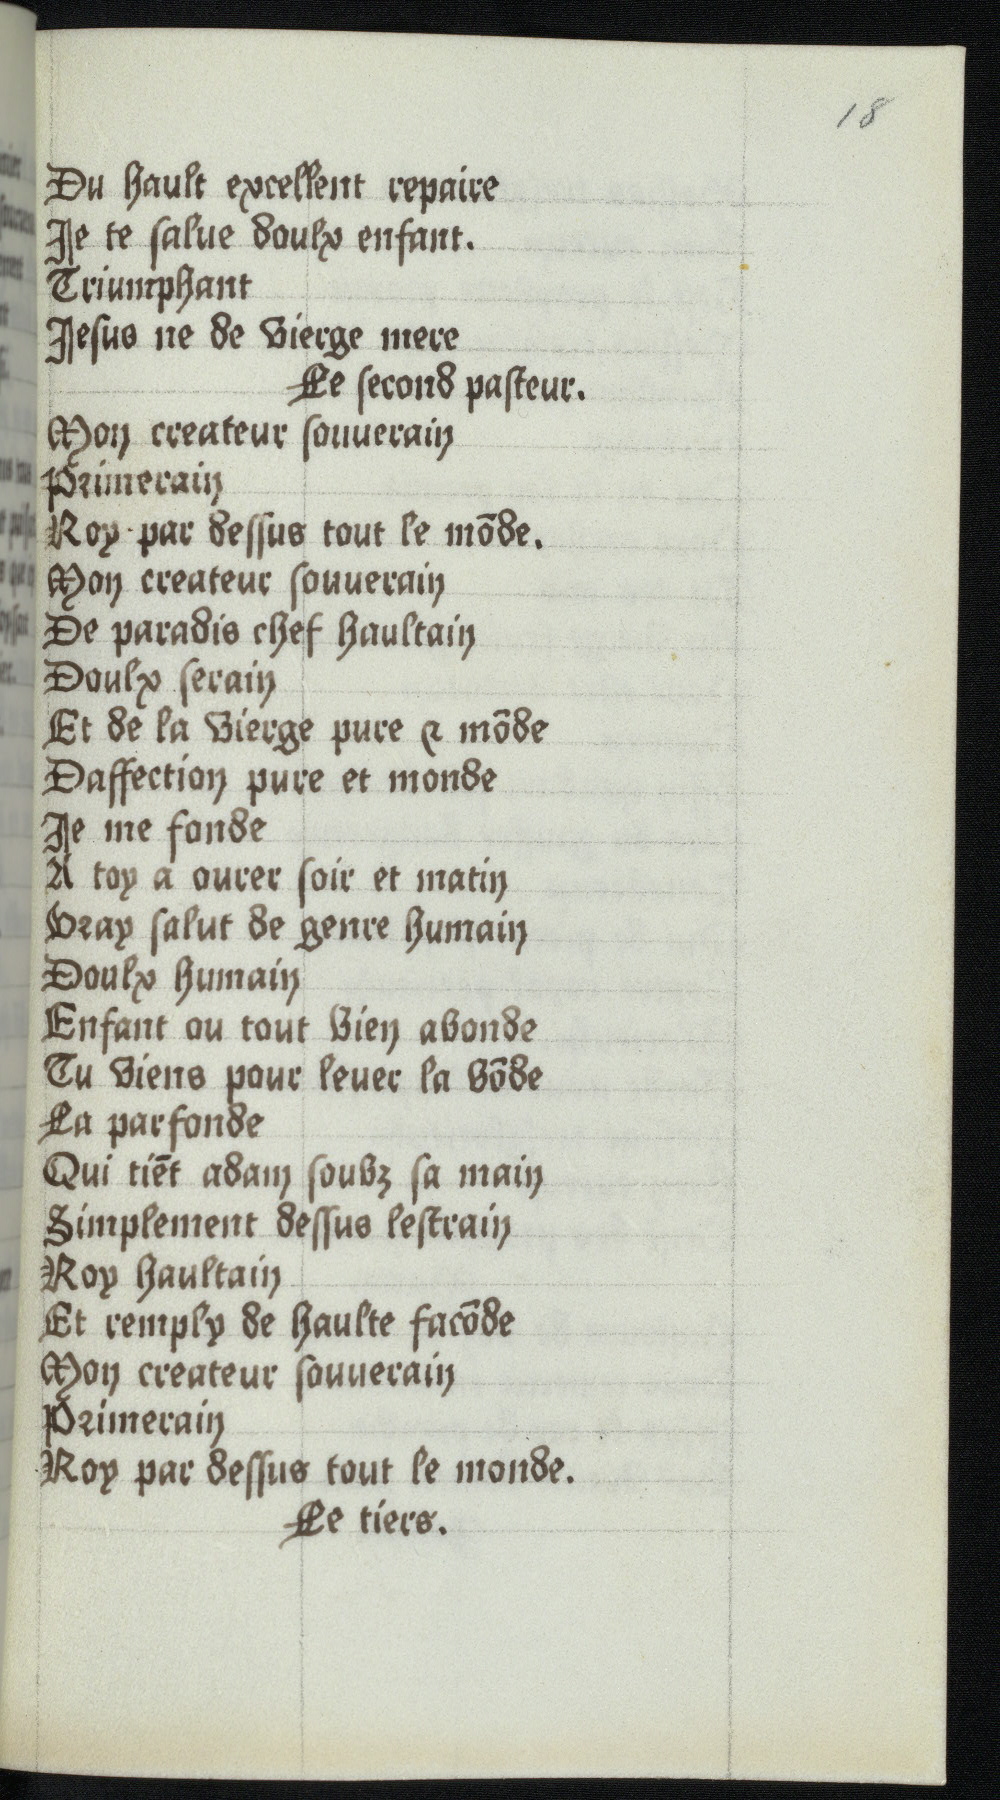 18
Du hault excellent repaire
Je te salue doulx enfant.
Triumphant
Jesus ne de vierge mere
Le second pasteur.
Mon createur souuerain
Primerain
Roy par dessus tout le mõde.
Mon createur souuerain
De paradis chef haultain
Doulx serain
Et de la vierge pure ⁊ mõde
Daffection pure et monde
Je me fonde
A toy a ourer soir et matin
Vray salut de genre humain
Doulx humain
Enfant ou tout bien abonde
Tu viens pour leuer la bõde
La parfonde
Qui tiẽt adam soubz sa main
Simplement dessus lestrain
Roy haultain
Et remply de haulte facõde
Mon createur souuerain
Primerain
Roy par dessus tout le monde.
Le tiers.